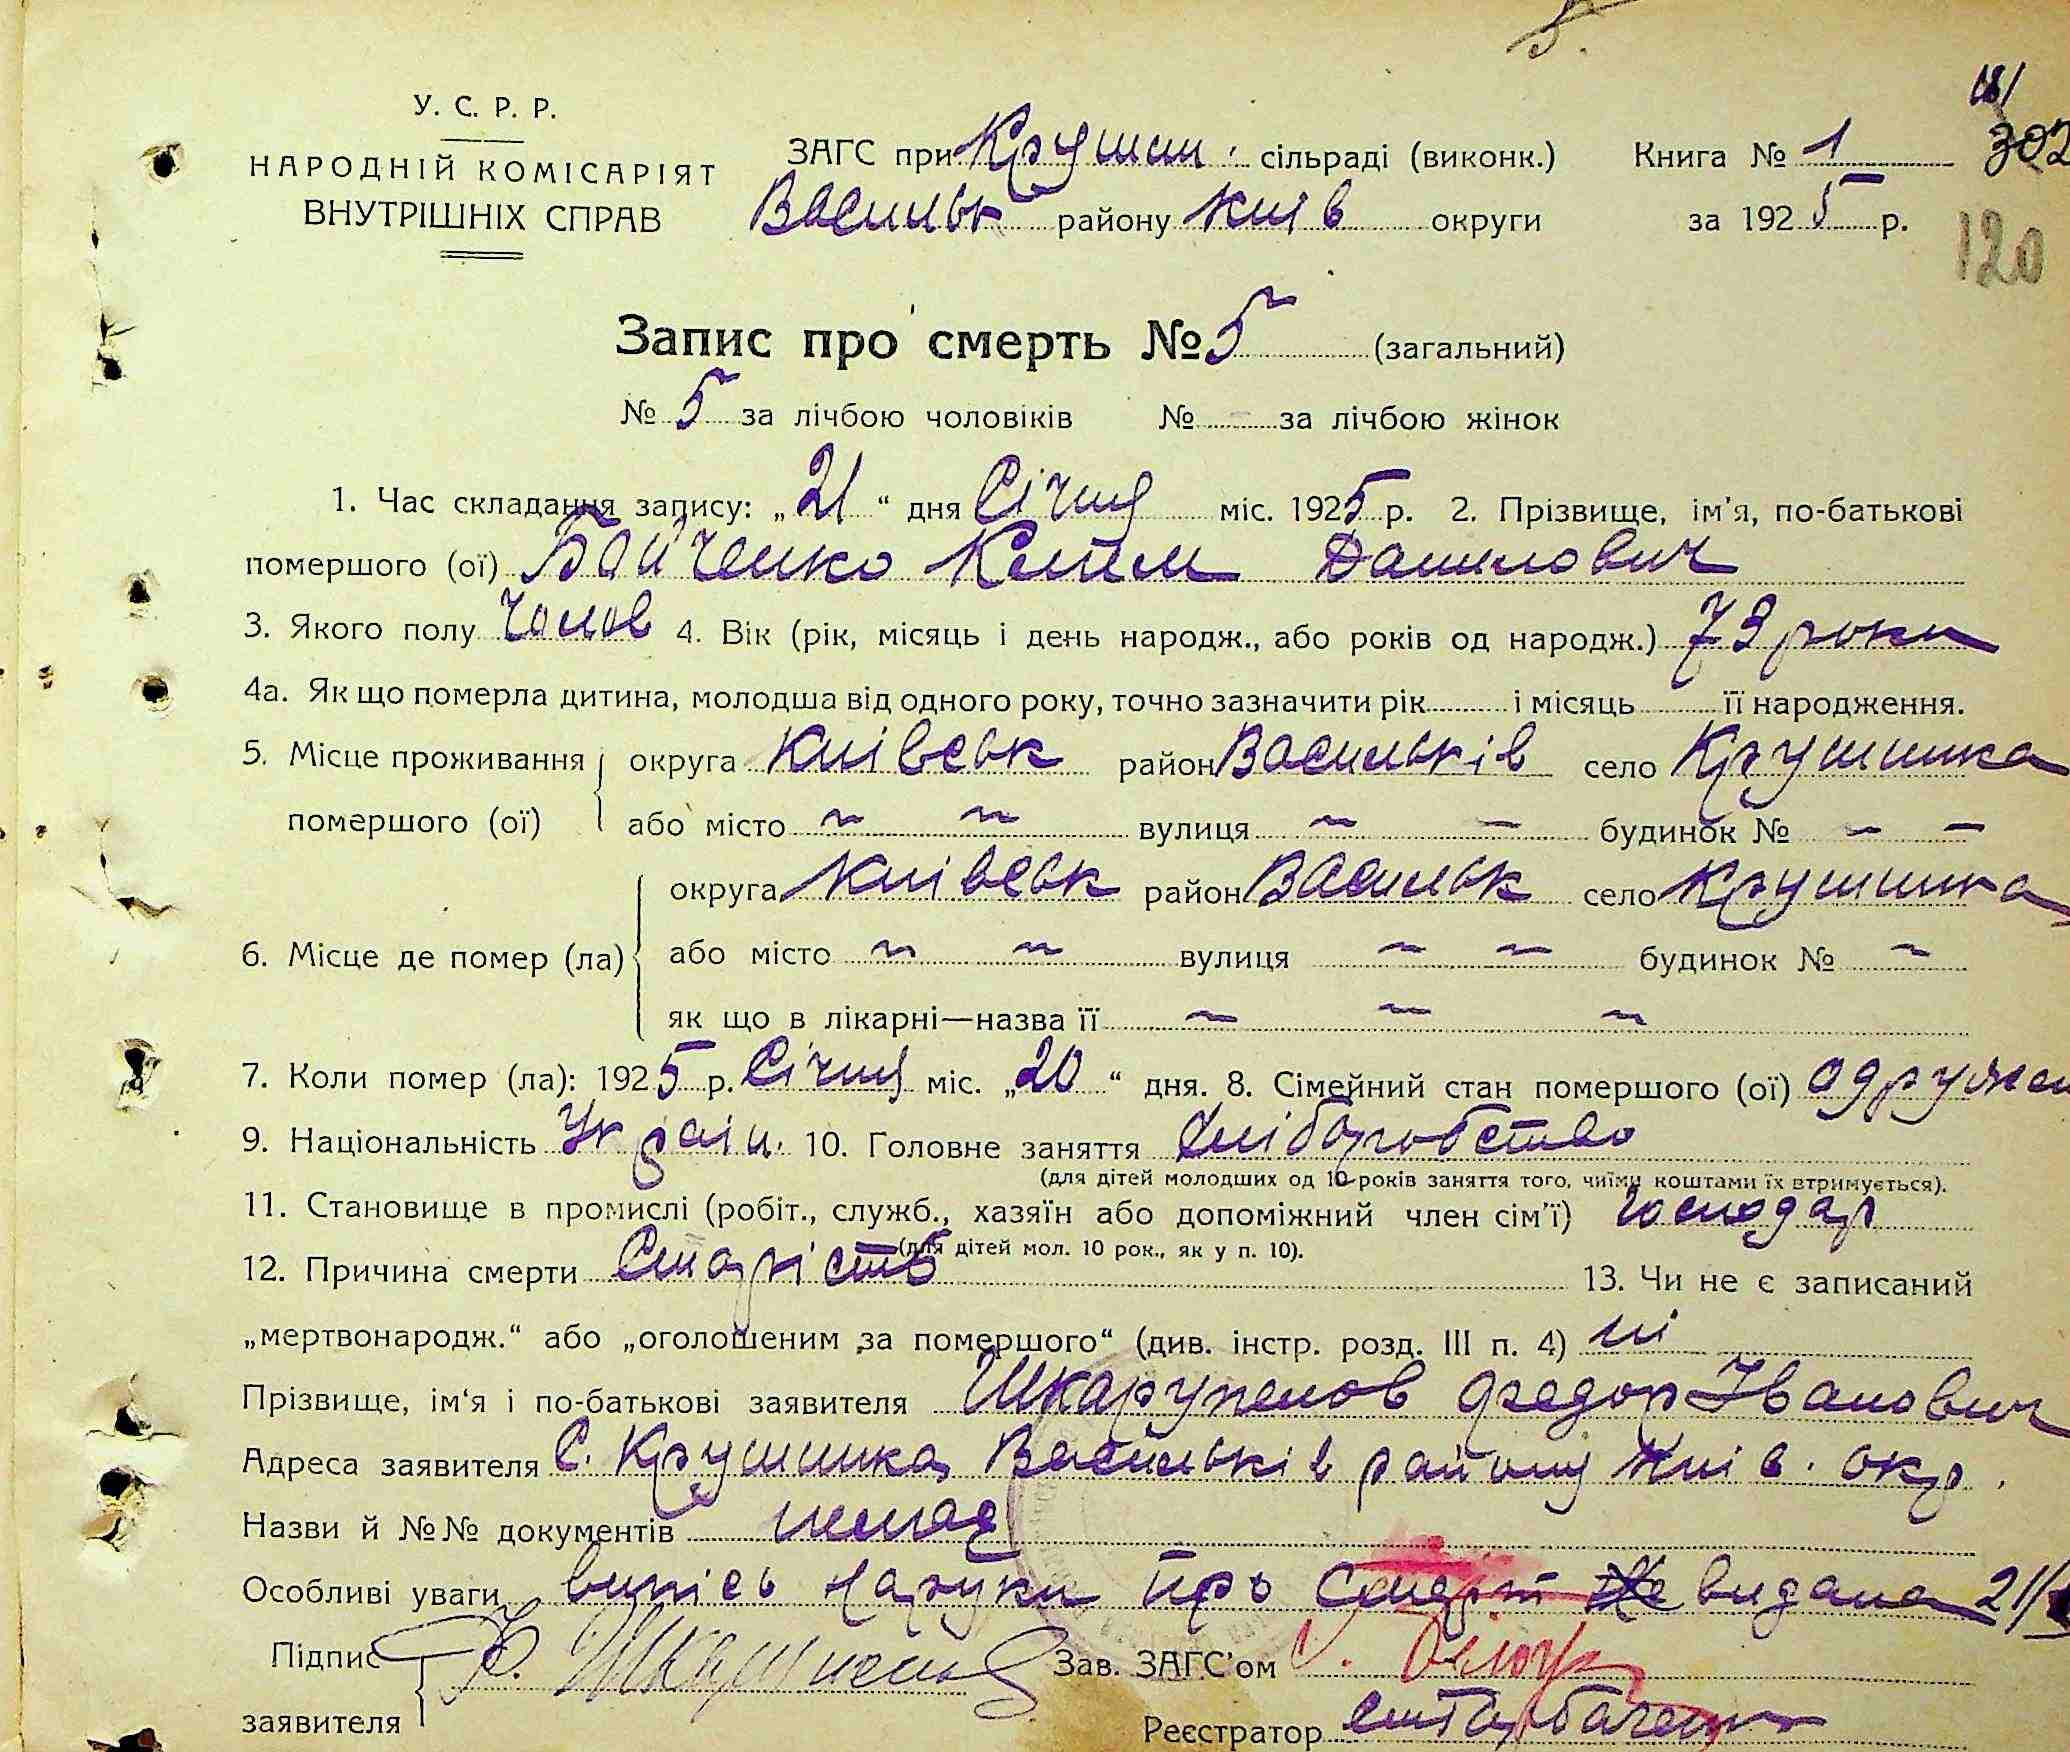 5.
У. С. Р. Р.
НАРОДНІЙ КОМІСАРІЯТ
ВНУТРІШНІХ СПРАВ
ЗАГС при Крушин. сільраді (виконк.) Книга № 1 302
Васильк району Київ округи за 1925 р.
120
Запис про смерть № 5 (загальний)
№ 5 за лічбою чоловіків № - за лічбою жінок
1. Час складання запису: „21“ дня Січня міс. 1925 р. 2. Прізвище, ім'я, по-батькові
помершого (ої) Бойченко Клим Данилович
3. Якого полу чолов 4. Вік (рік, місяць і день народж., або років од народж.) 73 роки
4а. Як що померла дитина, молодша від одного року, точно зазначити рік і місяць її народження.
5. Місце проживання округа Київськ район Васильків село Крушинка
помершого (ої) або місто ~ ~ вулиця ~ - будинок № - -
округа Київськ район Васильк село Крушинка
6. Місце де помер (ла) або місто ~ ~ вулиця ~ ~ будинок № ~
як що в лікарні—назва її ~ ~ ~
7. Коли помер (ла): 1925 р. Січня міс. „20“ дня. 8. Сімейний стан помершого (ої) одружен
9. Національність Україн. 10. Головне заняття Хліборобство
(для дітей молодших од 10 років заняття того, чиїми коштами їх втримується).
11. Становище в промислі (робіт., служб., хазяїн або допоміжний член сім'ї) Господар
(для дітей мол. 10 рок., як у п. 10).
12. Причина смерти Старість 13. Чи не є записаний
„мертвонародж.“ або „оголошеним за помершого“ (див. інстр. розд. III п. 4) ні
Прізвище, ім'я і по-батькові заявителя Федор Іванович
Адреса заявителя С. Крушинка Васильків району Київ. окр.
Назви й №№ документів немає
Особливі уваги випісь на руки про смерт видана 21/I
Підпис
заявителя
Зав. ЗАГС'ом
Реєстратор